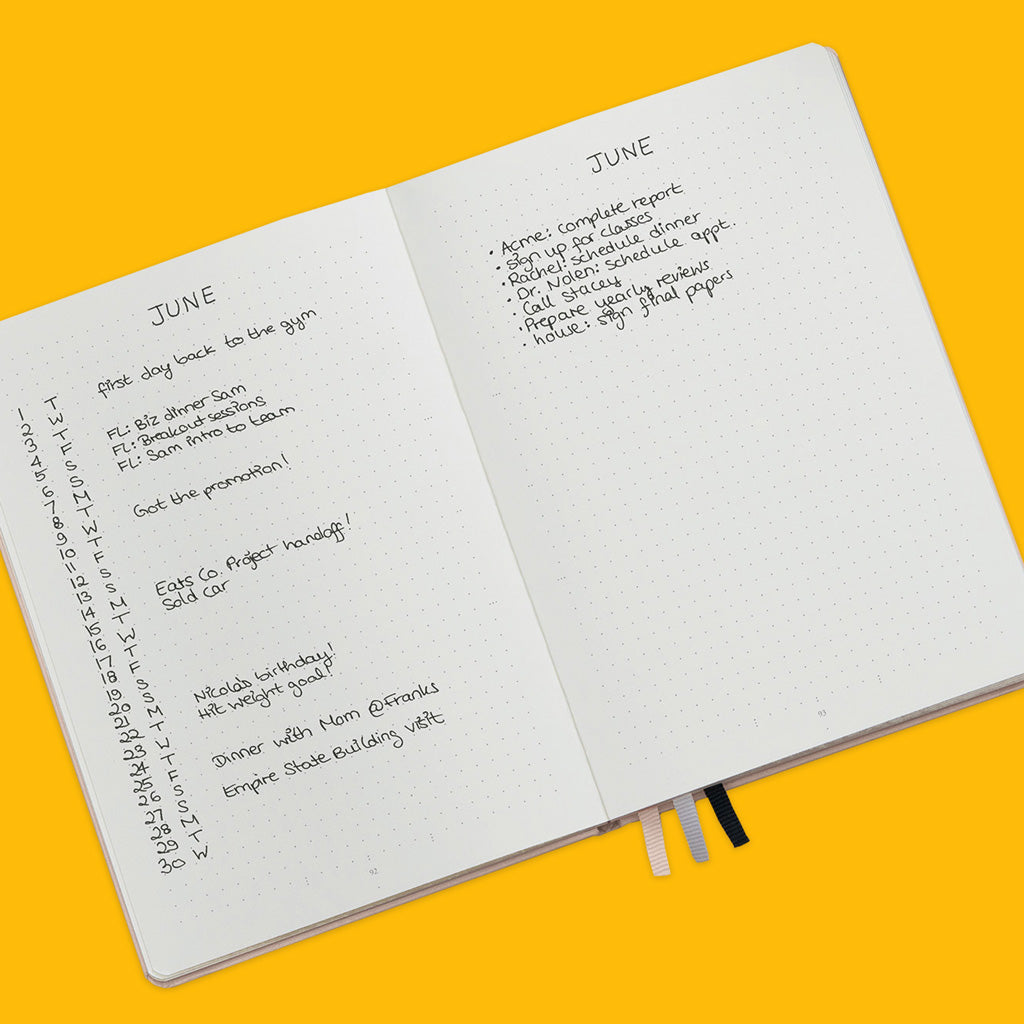 JUNE
first day back to the gym
1 T
2 W
3 T FL: Biz dinner Sam
4 F FL: Breakout sessions
5 S FL: Sam intro to team
6 S
7 M
8 T Got the promotion!
9 W
10 T
11 F
12 S
13 S Eats Co. Project handoff!
14 M Sold car
15 T
16 W
17 T
18 F
19 S
20 S Nicola's birthday!
21 M Hit weight goal!
22 T
23 W
24 T Dinner with Mom @Franks
25 F
26 S Empire State Building visit
27 S
28 M
29 T
30 W
92
JUNE
• Acme: complete report
• Sign up for classes
• Rachel: schedule dinner
• Dr. Nolen: schedule appt.
• Call Stacey
• Prepare yearly reviews
• house: sign final papers
93